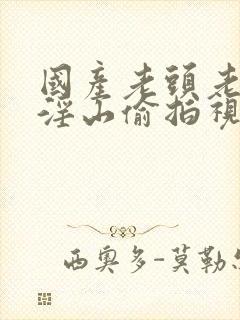 國產老頭老
淫山偷拍視
西奧多-莫勒